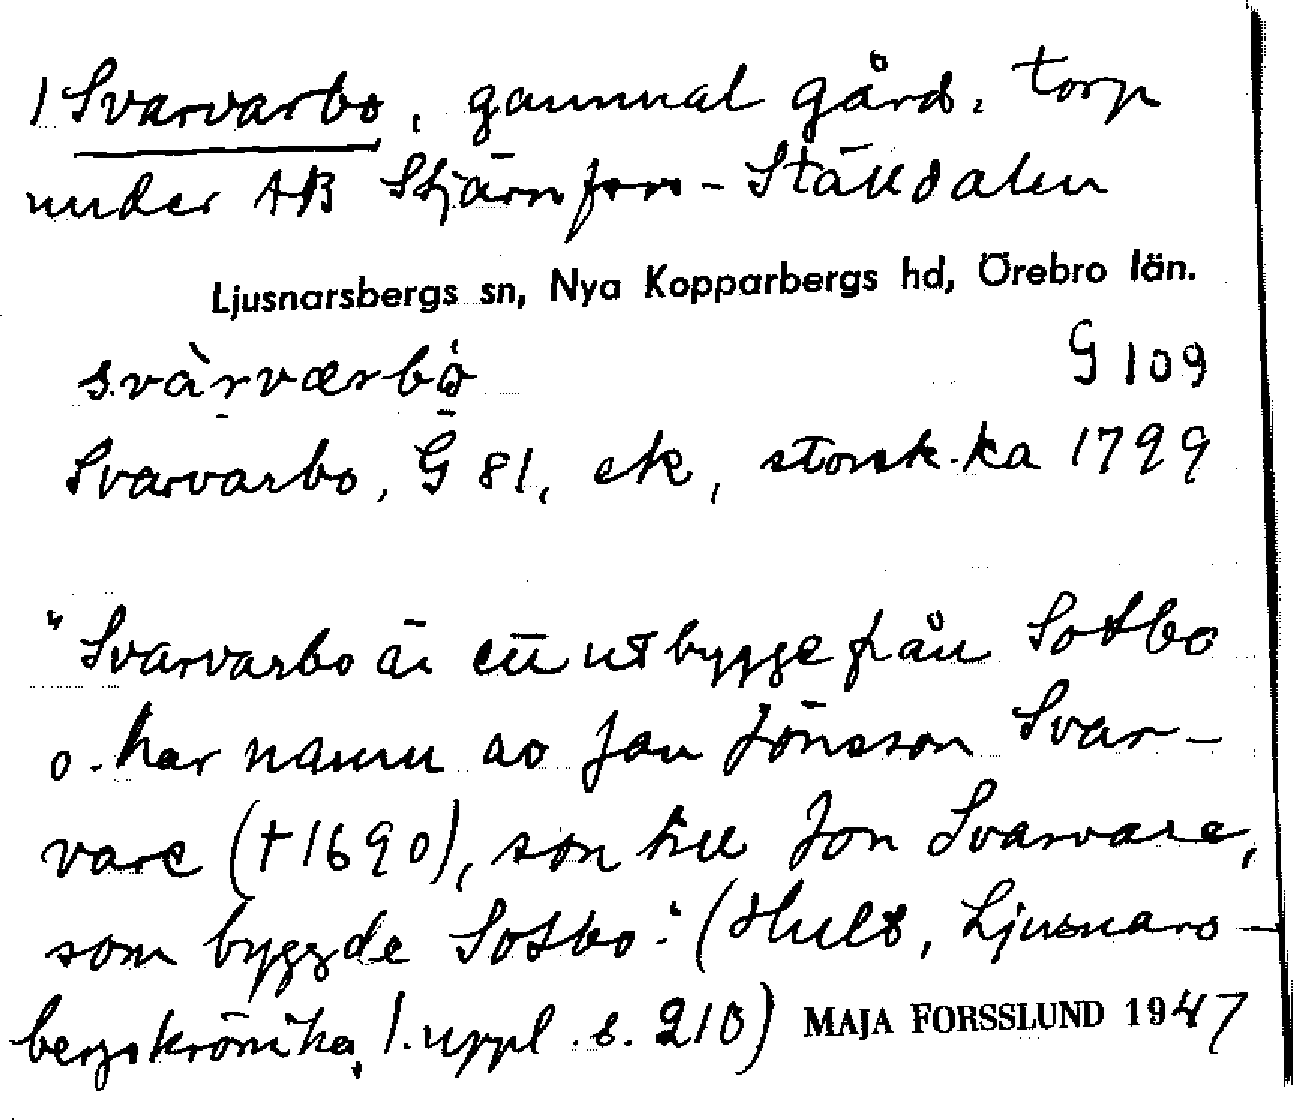 1 Svarvarbo, gammal gård, torp
under AB Stjärnfors-Ställdalen
Ljusnarsbergs sn, Nya Kopparbergs hd, Örebro län.
svàrværbó̤
G 109
Svarvarbo, G 81, ek, storsk.ka 1799
"Svarvarbo är ett utbygge från Sotbo
o. har namn av Jan Jönsson Svar-
vare (†1690), son till Jon Svarvare,
som byggde Sotbo." (Hult, Ljusnars-
bergskrönika, 1. uppl. s. 210)
MAJA FORSSLUND 1947